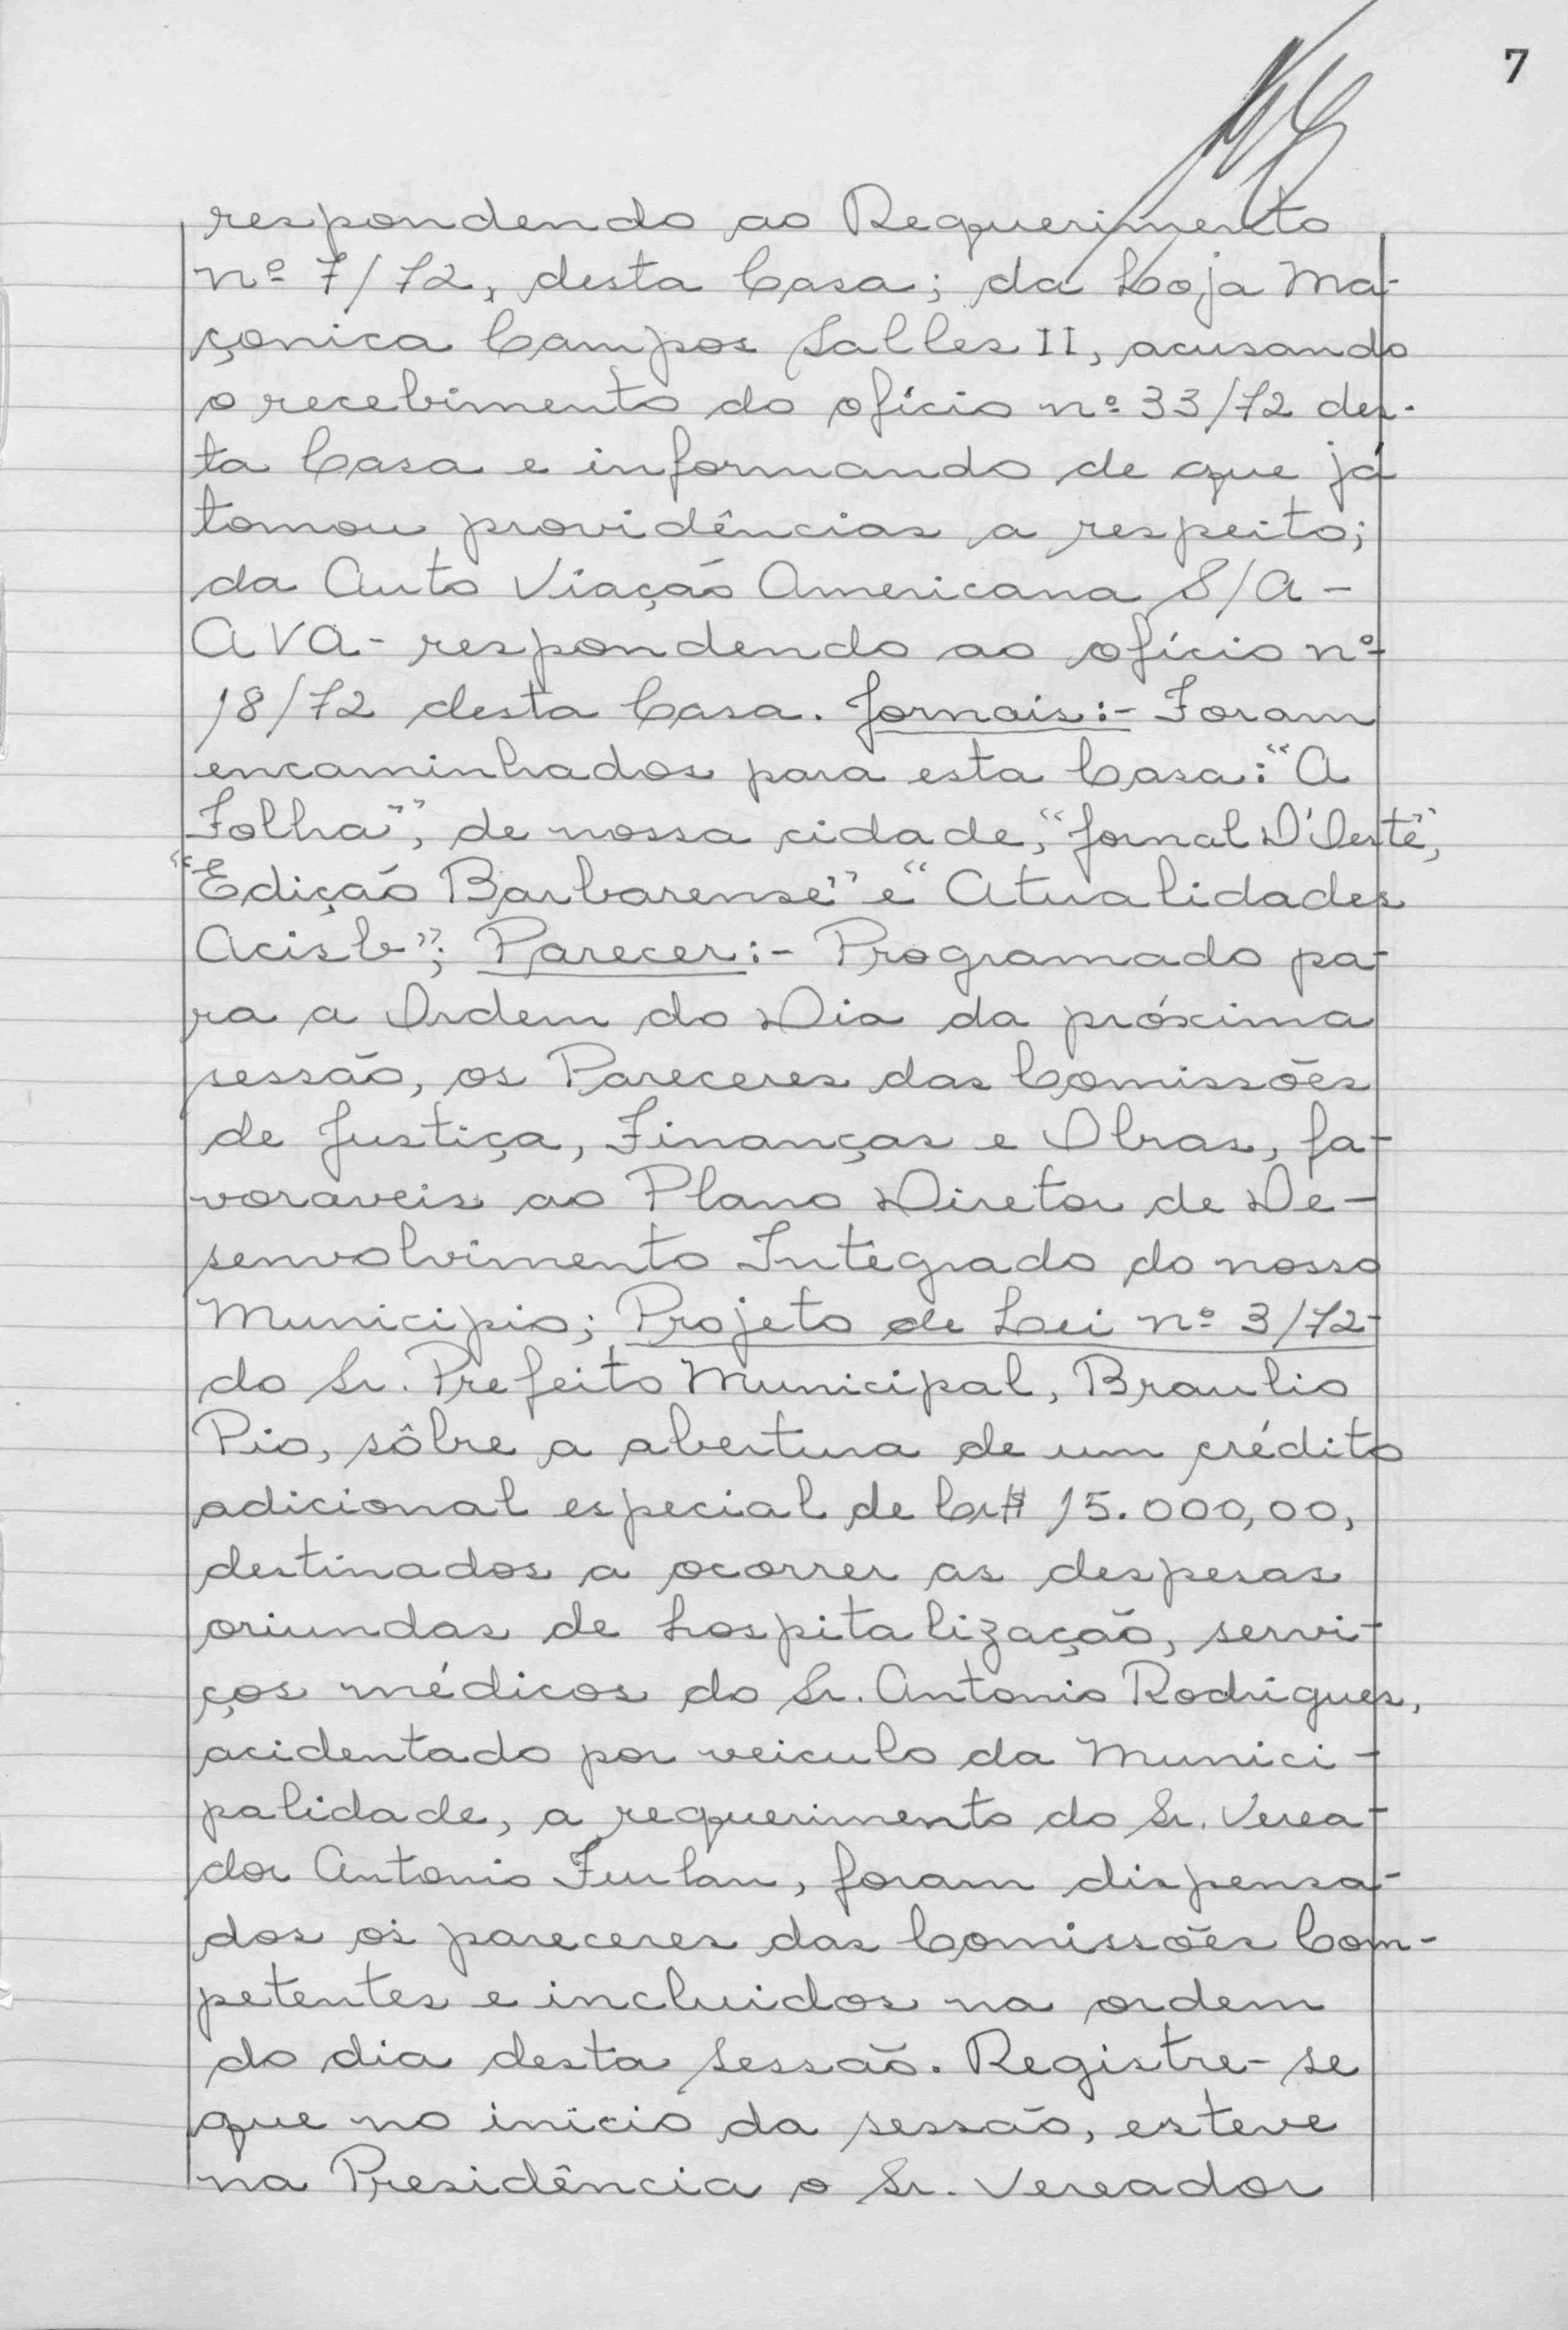 7
respondendo ao Requerimento
nº 7/72, desta Casa; da Loja Ma-
çonica Campos Salles II, acusando
o recebimento do ofício nº 33/72 des-
ta Casa e informando de que já
tomou providências a respeito;
da Auto Viação Americana S/A -
AVA - respondendo ao ofício nº
18/72 desta Casa. Jornais:- Foram
encaminhados para esta Casa: "A
Folha", de nossa cidade, "Jornal D'Oeste",
"Edição Barbarense" e "Atualidades
Acisb"; Parecer:- Programado pa-
ra a Ordem do Dia da próxima
sessão, os Pareceres das Comissões
de Justiça, Finanças e Obras, fa-
voraveis ao Plano Diretor de De-
senvolvimento Integrado do nosso
Municipio; Projeto de Lei nº 3/72-
do Sr. Prefeito Municipal, Braulio
Pio, sôbre a abertura de um crédito
adicional especial de Cr$ 15.000,00,
destinados a ocorrer as despesas
oriundas de hospitalização, servi-
ços médicos do Sr. Antonio Rodrigues,
acidentado por veiculo da Munici-
palidade, a requerimento do Sr. Verea-
dor Antonio Furlan, foram dispensa-
dos os pareceres das Comissões Com-
petentes e incluidos na ordem
do dia desta Sessão. Registre-se
que no inicio da sessão, esteve
na Presidência o Sr. Vereador